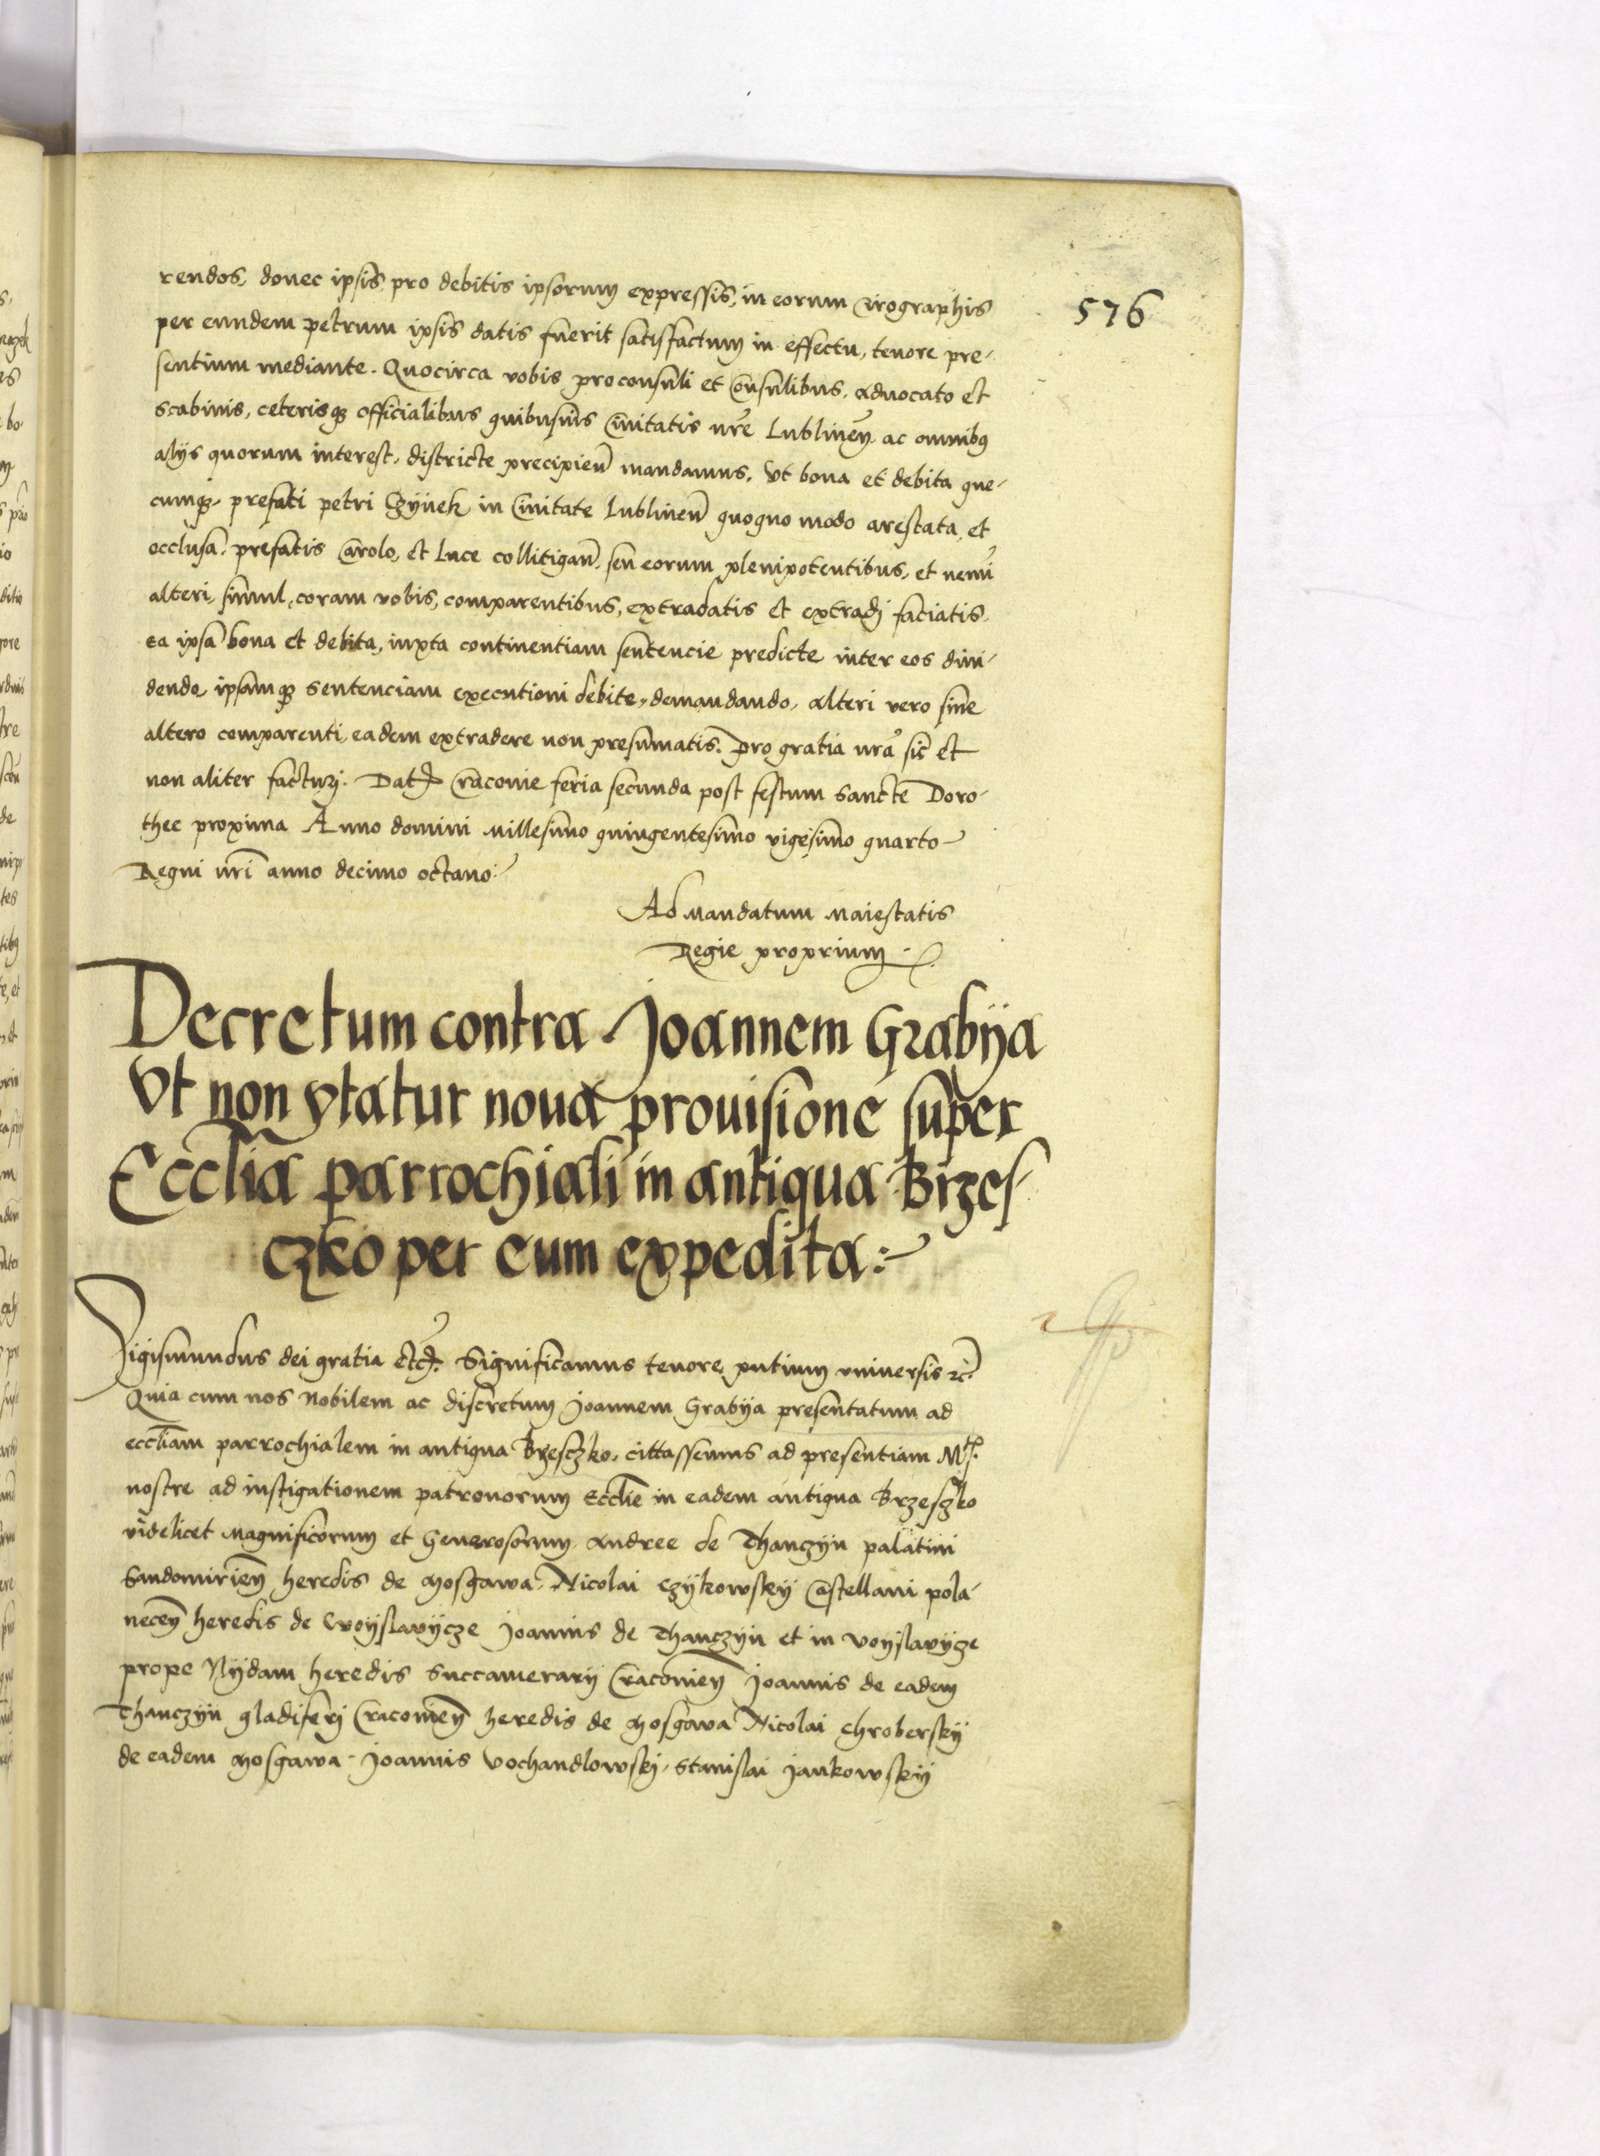 576
rendos, donec ipsis pro debitis ipsorum expressis, in eorum cirographis
per eundem petrum ipsis datis fuerit satisfactum in effectu, tenore pre-
sentium mediante. Quocirca vobis proconsuli et consulibus, advocato et
scabinis, ceterisq3 officialibus quibusuis Ciuitatis nr̃e Lublineñ ac omnibq
alijs quorum interest, districte precipieñ mandamus, vt bona et debita que-
cumq3, prefati petri Czÿnek in Ciuitate Lublineñ quoquo modo arestata, et
occlusa, prefatis Carolo, et Luce collitigañ, seu eorum plenipotentibus, et nemi
alteri, simul, coram vobis, comparentibus, extradatis et extradj faciatis.
Ea ipsa bona et debita, iuxta continentiam sentencie predicte inter eos diui-
dendo, ipsamq3 sentenciam executioni debite, demandando, Alteri vero sine
altero comparenti, eadem extradere non presumatis. Pro gratia nr̃a sic et
non aliter facturj. Dat̃ Cracouie feria secunda post festum Sancte Doro-
thee proxima Anno domini Millesimo quingentesimo vigesimo quarto
Regni nr̃i anno decimo octauo.
Ad Mandatum Maiestatis
Regie proprium.
Decretum contra Joannem Grabÿa
Vt non vtatur noua prouisione super
Eccl̃ia parrochiali in antiqua Brzes-
czko per eum expedita:
Sigismundus dei gratia etc̃. Significamus tenore pñtium vniuersis ꝛc̃.
Quia cum nos Nobilem ac discretum Joannem Grabÿa presentatum ad
eccl̃iam parrochialem in antiqua Brzesczko, cittassemus ad presentiam Mt̃is
nostre ad instigationem patronorum Eccl̃ie in eadem antiqua Brzeszko
videlicet Magnificorum et Generosorum Andree de Thanczÿn palatini
Sandomirieñ heredis de Mosgawa, Nicolai Czÿkowskÿ Castellani pola-
neceñ heredis de Woÿslavÿcze Joannis de Thanczÿn et in Voÿslavÿcze
prope Nÿdam heredis Succamerarij Cracouieñ Joannis de eadem
Thanczÿn gladiferj Cracouieñ heredis de Mosgawa Nicolai Chroberskÿ
de eadem Mosgawa. Joannis Vochandlowskj, Stanislai Jankowskÿ